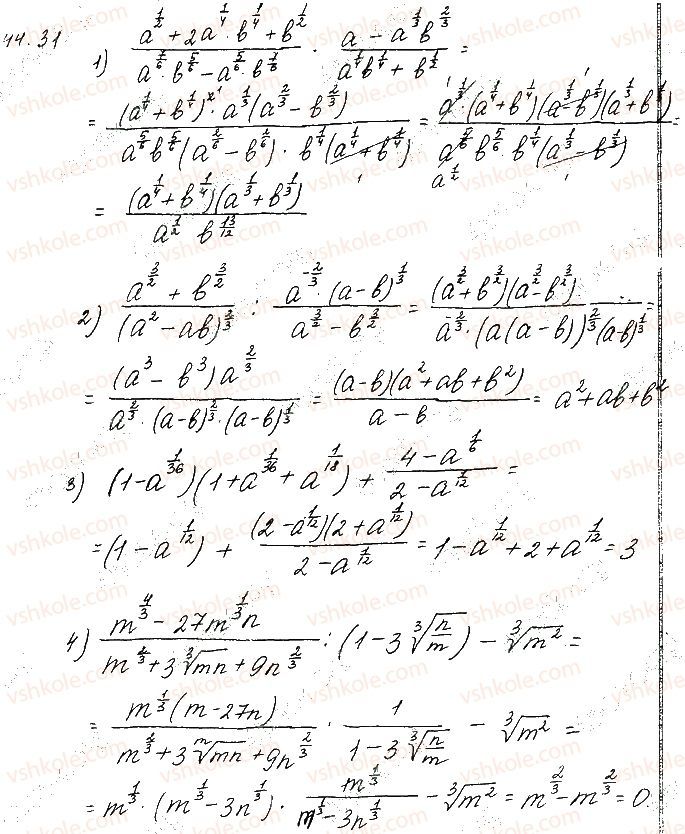 44.31
1) \frac{a^{\frac{1}{2}} + 2a^{\frac{1}{4}} \cdot b^{\frac{1}{4}} + b^{\frac{1}{2}}}{a^{\frac{7}{6}} \cdot b^{\frac{5}{6}} - a^{\frac{5}{6}} \cdot b^{\frac{7}{6}}} \cdot \frac{a - a^{\frac{1}{3}} b^{\frac{2}{3}}}{a^{\frac{1}{4}} b^{\frac{1}{4}} + b^{\frac{1}{2}}} =
= \frac{(a^{\frac{1}{4}} + b^{\frac{1}{4}})^{2} \cdot a^{\frac{1}{3}} (a^{\frac{2}{3}} - b^{\frac{2}{3}})}{a^{\frac{5}{6}} b^{\frac{5}{6}} (a^{\frac{2}{6}} - b^{\frac{2}{6}}) \cdot b^{\frac{1}{4}} (a^{\frac{1}{4}} + b^{\frac{1}{4}})} = \frac{a^{\frac{1}{3}} \cdot (a^{\frac{1}{4}} + b^{\frac{1}{4}})(a^{\frac{1}{3}} - b^{\frac{1}{3}})(a^{\frac{1}{3}} + b^{\frac{1}{3}})}{a^{\frac{5}{6}} b^{\frac{5}{6}} \cdot b^{\frac{1}{4}} (a^{\frac{1}{3}} - b^{\frac{1}{3}})} =
a^{\frac{1}{2}}
= \frac{(a^{\frac{1}{4}} + b^{\frac{1}{4}})(a^{\frac{1}{3}} + b^{\frac{1}{3}})}{a^{\frac{1}{2}} b^{\frac{13}{12}}}
2) \frac{a^{\frac{3}{2}} + b^{\frac{3}{2}}}{(a^{2} - ab)^{\frac{2}{3}}} : \frac{a^{-\frac{2}{3}} \cdot (a - b)^{\frac{1}{3}}}{a^{\frac{3}{2}} - b^{\frac{3}{2}}} = \frac{(a^{\frac{3}{2}} + b^{\frac{3}{2}})(a^{\frac{3}{2}} - b^{\frac{3}{2}})}{a^{-\frac{2}{3}} \cdot (a(a - b))^{\frac{2}{3}} (a-b)^{\frac{1}{3}}} =
= \frac{(a^{3} - b^{3}) a^{\frac{2}{3}}}{a^{\frac{2}{3}} \cdot (a-b)^{\frac{2}{3}} \cdot (a-b)^{\frac{1}{3}}} = \frac{(a-b)(a^{2} + ab + b^{2})}{a - b} = a^{2} + ab + b^{2}
3) (1 - a^{\frac{1}{36}})(1 + a^{\frac{1}{36}} + a^{\frac{1}{18}}) + \frac{4 - a^{\frac{1}{6}}}{2 - a^{\frac{1}{12}}} =
= (1 - a^{\frac{1}{12}}) + \frac{(2 - a^{\frac{1}{12}})(2 + a^{\frac{1}{12}})}{2 - a^{\frac{1}{12}}} = 1 - a^{\frac{1}{12}} + 2 + a^{\frac{1}{12}} = 3
4) \frac{m^{\frac{4}{3}} - 27m^{\frac{1}{3}} n}{m^{\frac{2}{3}} + 3\sqrt[3]{mn} + 9n^{\frac{2}{3}}} : (1 - 3\sqrt[3]{\frac{n}{m}}) - \sqrt[3]{m^{2}} =
= \frac{m^{\frac{1}{3}} (m - 27n)}{m^{\frac{2}{3}} + 3\sqrt[m]{mn} + 9n^{\frac{2}{3}}} \cdot \frac{1}{1 - 3\sqrt[3]{\frac{n}{m}}} - \sqrt[3]{m^{2}} =
= m^{\frac{1}{3}} \cdot (m^{\frac{1}{3}} - 3n^{\frac{1}{3}}) \cdot \frac{m^{\frac{1}{3}}}{m^{\frac{1}{3}} - 3n^{\frac{1}{3}}} - \sqrt[3]{m^{2}} = m^{\frac{2}{3}} - m^{\frac{2}{3}} = 0